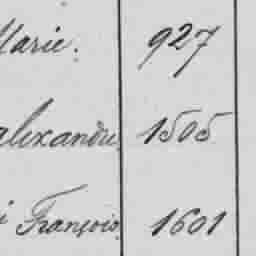 Marie. 927
alexandre 1505
i François. 1601